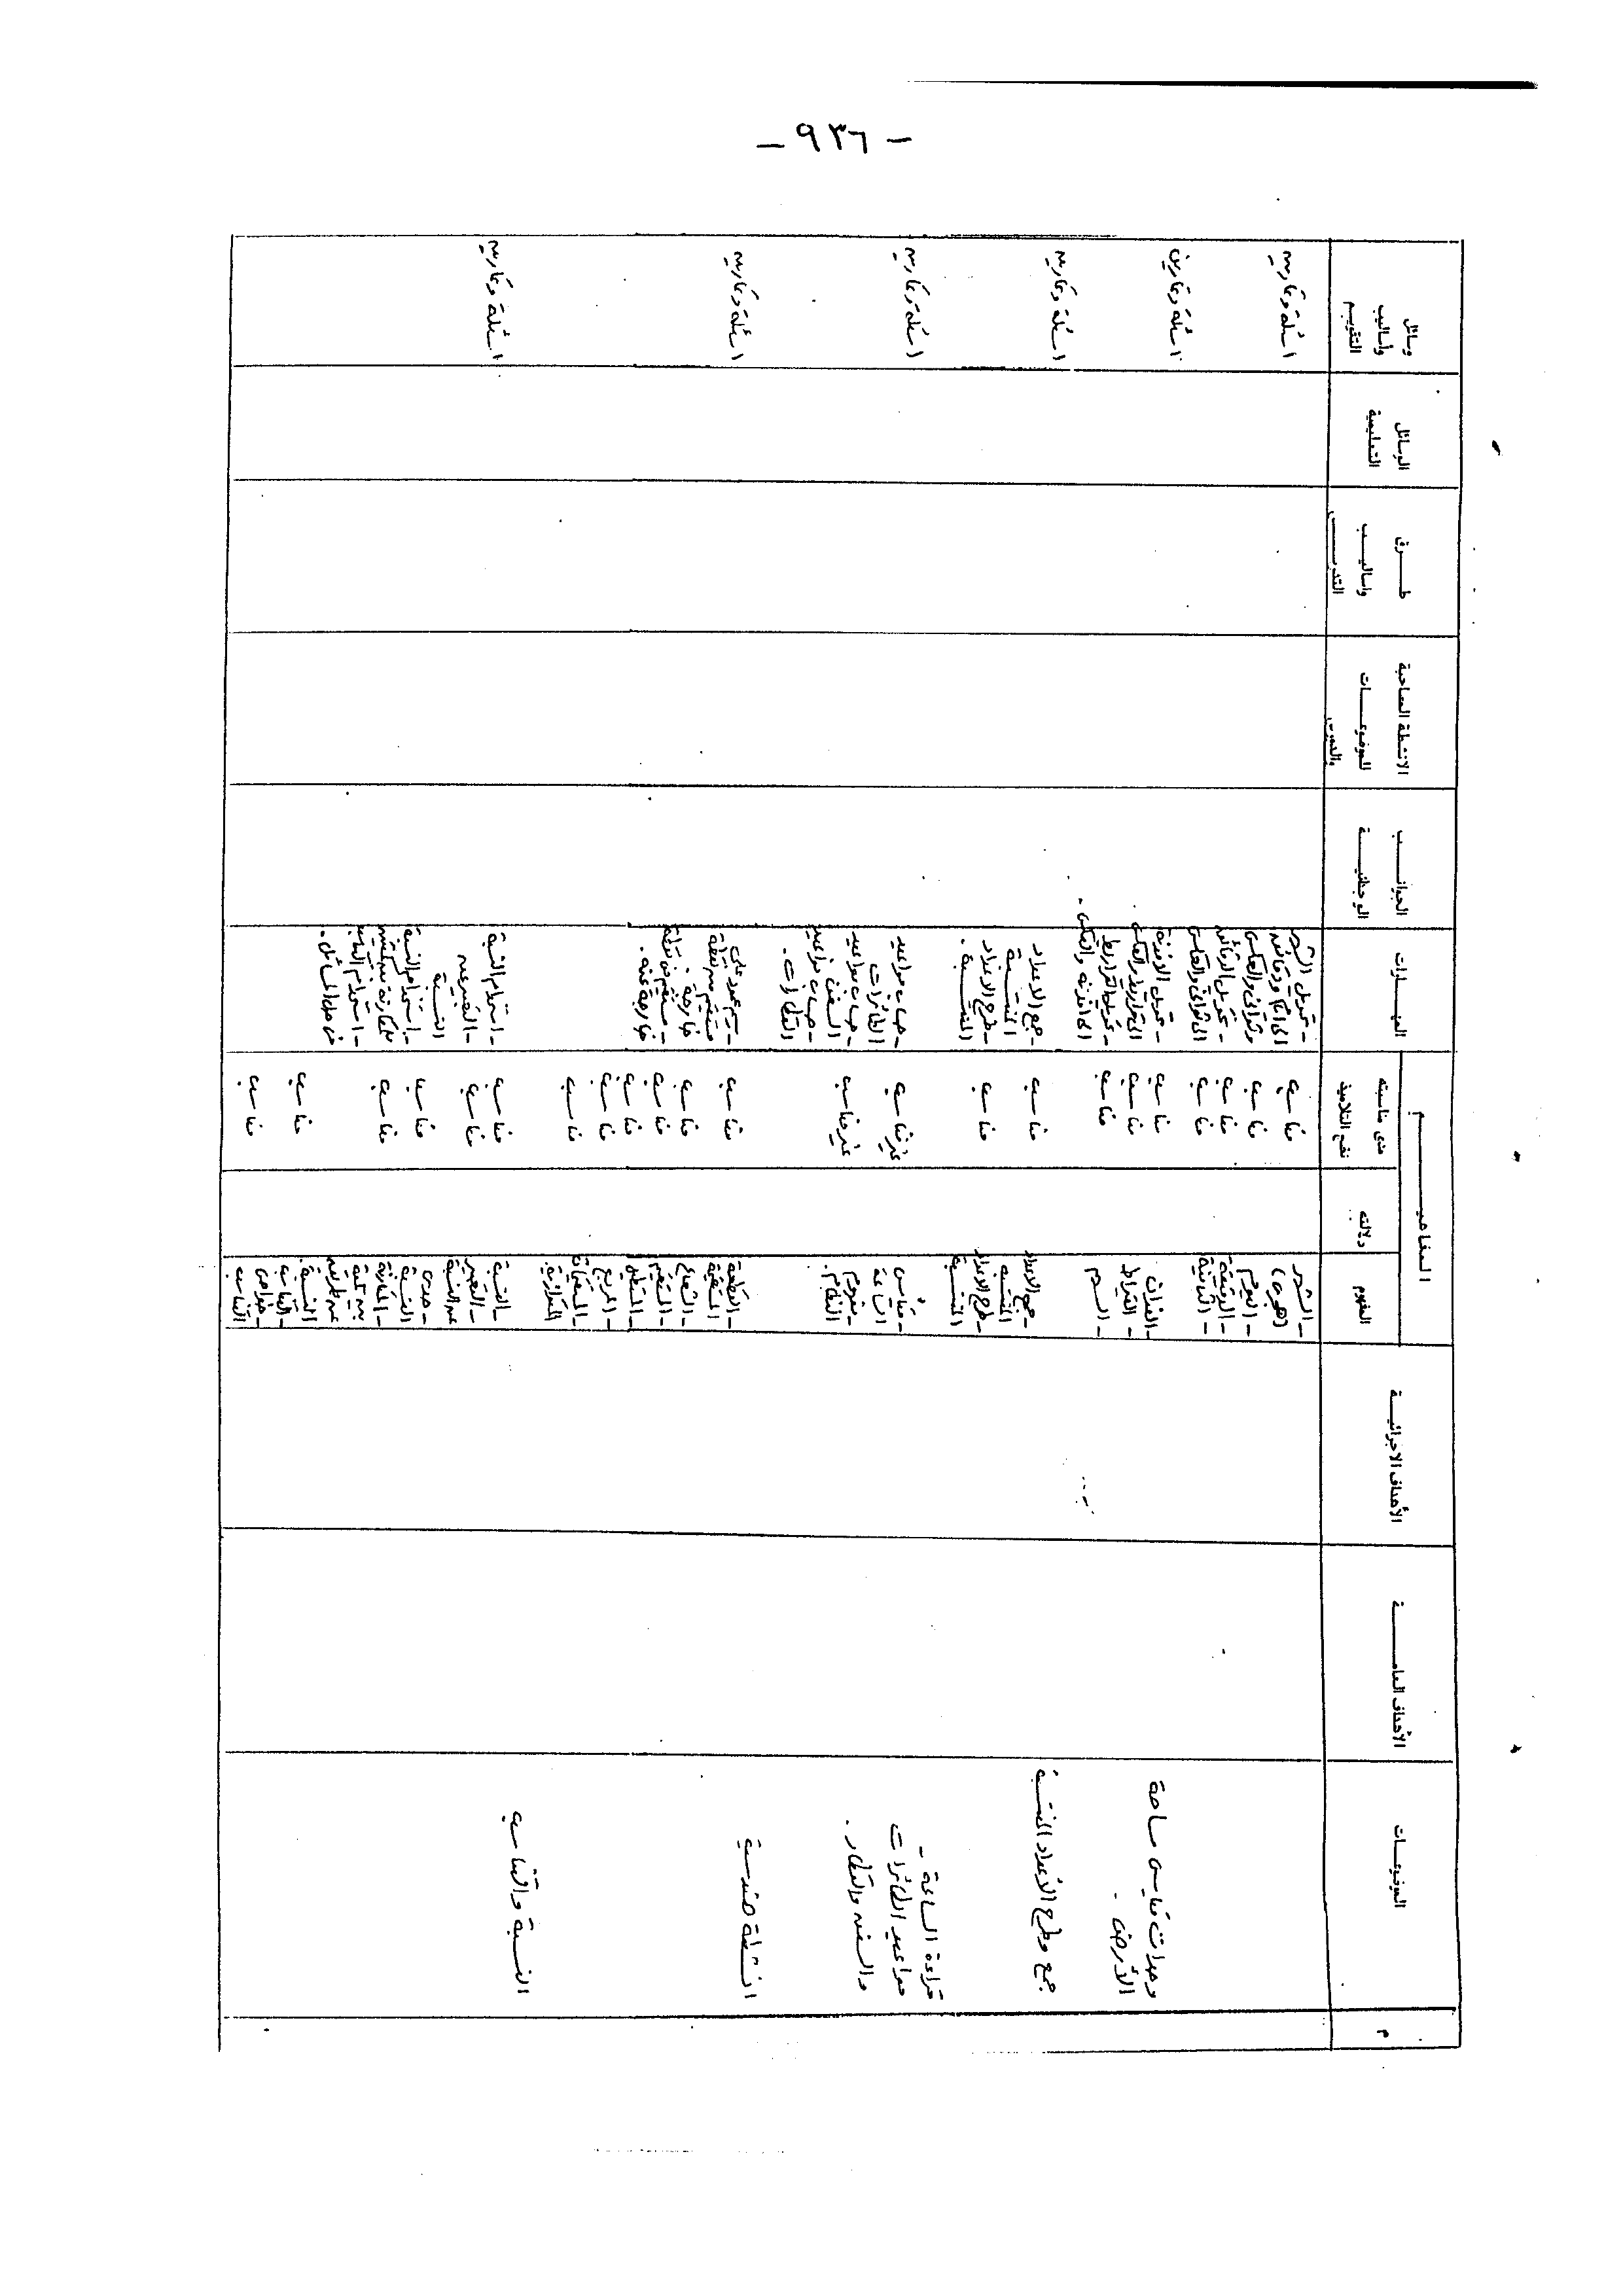 - ٩٣٦ -
م
الموضوعات
الأهداف العامة
الأهداف الاجرائية
المفاهيم
المفهوم
دلالته
مدى مناسبته
نضج التلاميذ
المهارات
الجوانب
الوجدانية
الانشطة المصاحبة
للموضوعات
طرق
واساليب
التدريس
الوسائل
التعليمية
وسائل
واساليب
التقويم
- الشهر
- اليوم
- الدقيقة
- الثانية
مناسب
مناسب
مناسب
مناسب
- تحويل الشهر
الى ايام ودقائق
وثوانى والعكس
- تحويل الدقائق
الى ثوانى والعكس
اسئلة وتمارين
وحدات قياس مساحة
الأرض .
- الفدان
- القيراط
- السهم
مناسب
مناسب
مناسب
- تحويل الافدنة
الى قراريط والعكس
- تحويل القراريط
الى افدنة والعكس .
اسئلة وتمارين
جمع وطرح الأعداد المنتسبة
- جمع الاعداد
المنتسبة
- طرح الاعداد
المنتسبة
مناسب
مناسب
- جمع الاعداد
المنتسبة
- طرح الاعداد
المنتسبة .
اسئلة وتمارين
قراءة الساعة -
مواعيد الطائرات
والسفن والقطار .
- قياس
الساعة
- مفهوم
النظام .
غير مناسب
غير مناسب
- حساب مواعيد
الطائرات
- حساب مواعيد
السفن
- حساب مواعيد
القطارات .
اسئلة وتمارين
انشطة هندسية
- القطعة
المستقيمة
- الشعاع
- المستقيم
- المستطيل
- المربع
- المستقيمات
المتوازية
مناسب
مناسب
مناسب
مناسب
مناسب
مناسب
- رسم عمود على
مستقيم من نقطة
خارجة .
مستقيم من نقطة
خارجة عنه .
اسئلة وتمارين
النسبة والتناسب
- النسبة
- التعبير
عن النسبة
- خواص
النسبة
- المقارنة
بين كمية
عن طريق
النسبة
- التناسب
- خواص
التناسب
مناسب
مناسب
مناسب
مناسب
مناسب
مناسب
- استخدام النسبة
- التعبير عن
النسبة
- استخدام النسبة
للمقارنة بين كميتين
- استخدام التناسب
فى حل المسائل .
اسئلة وتمارين